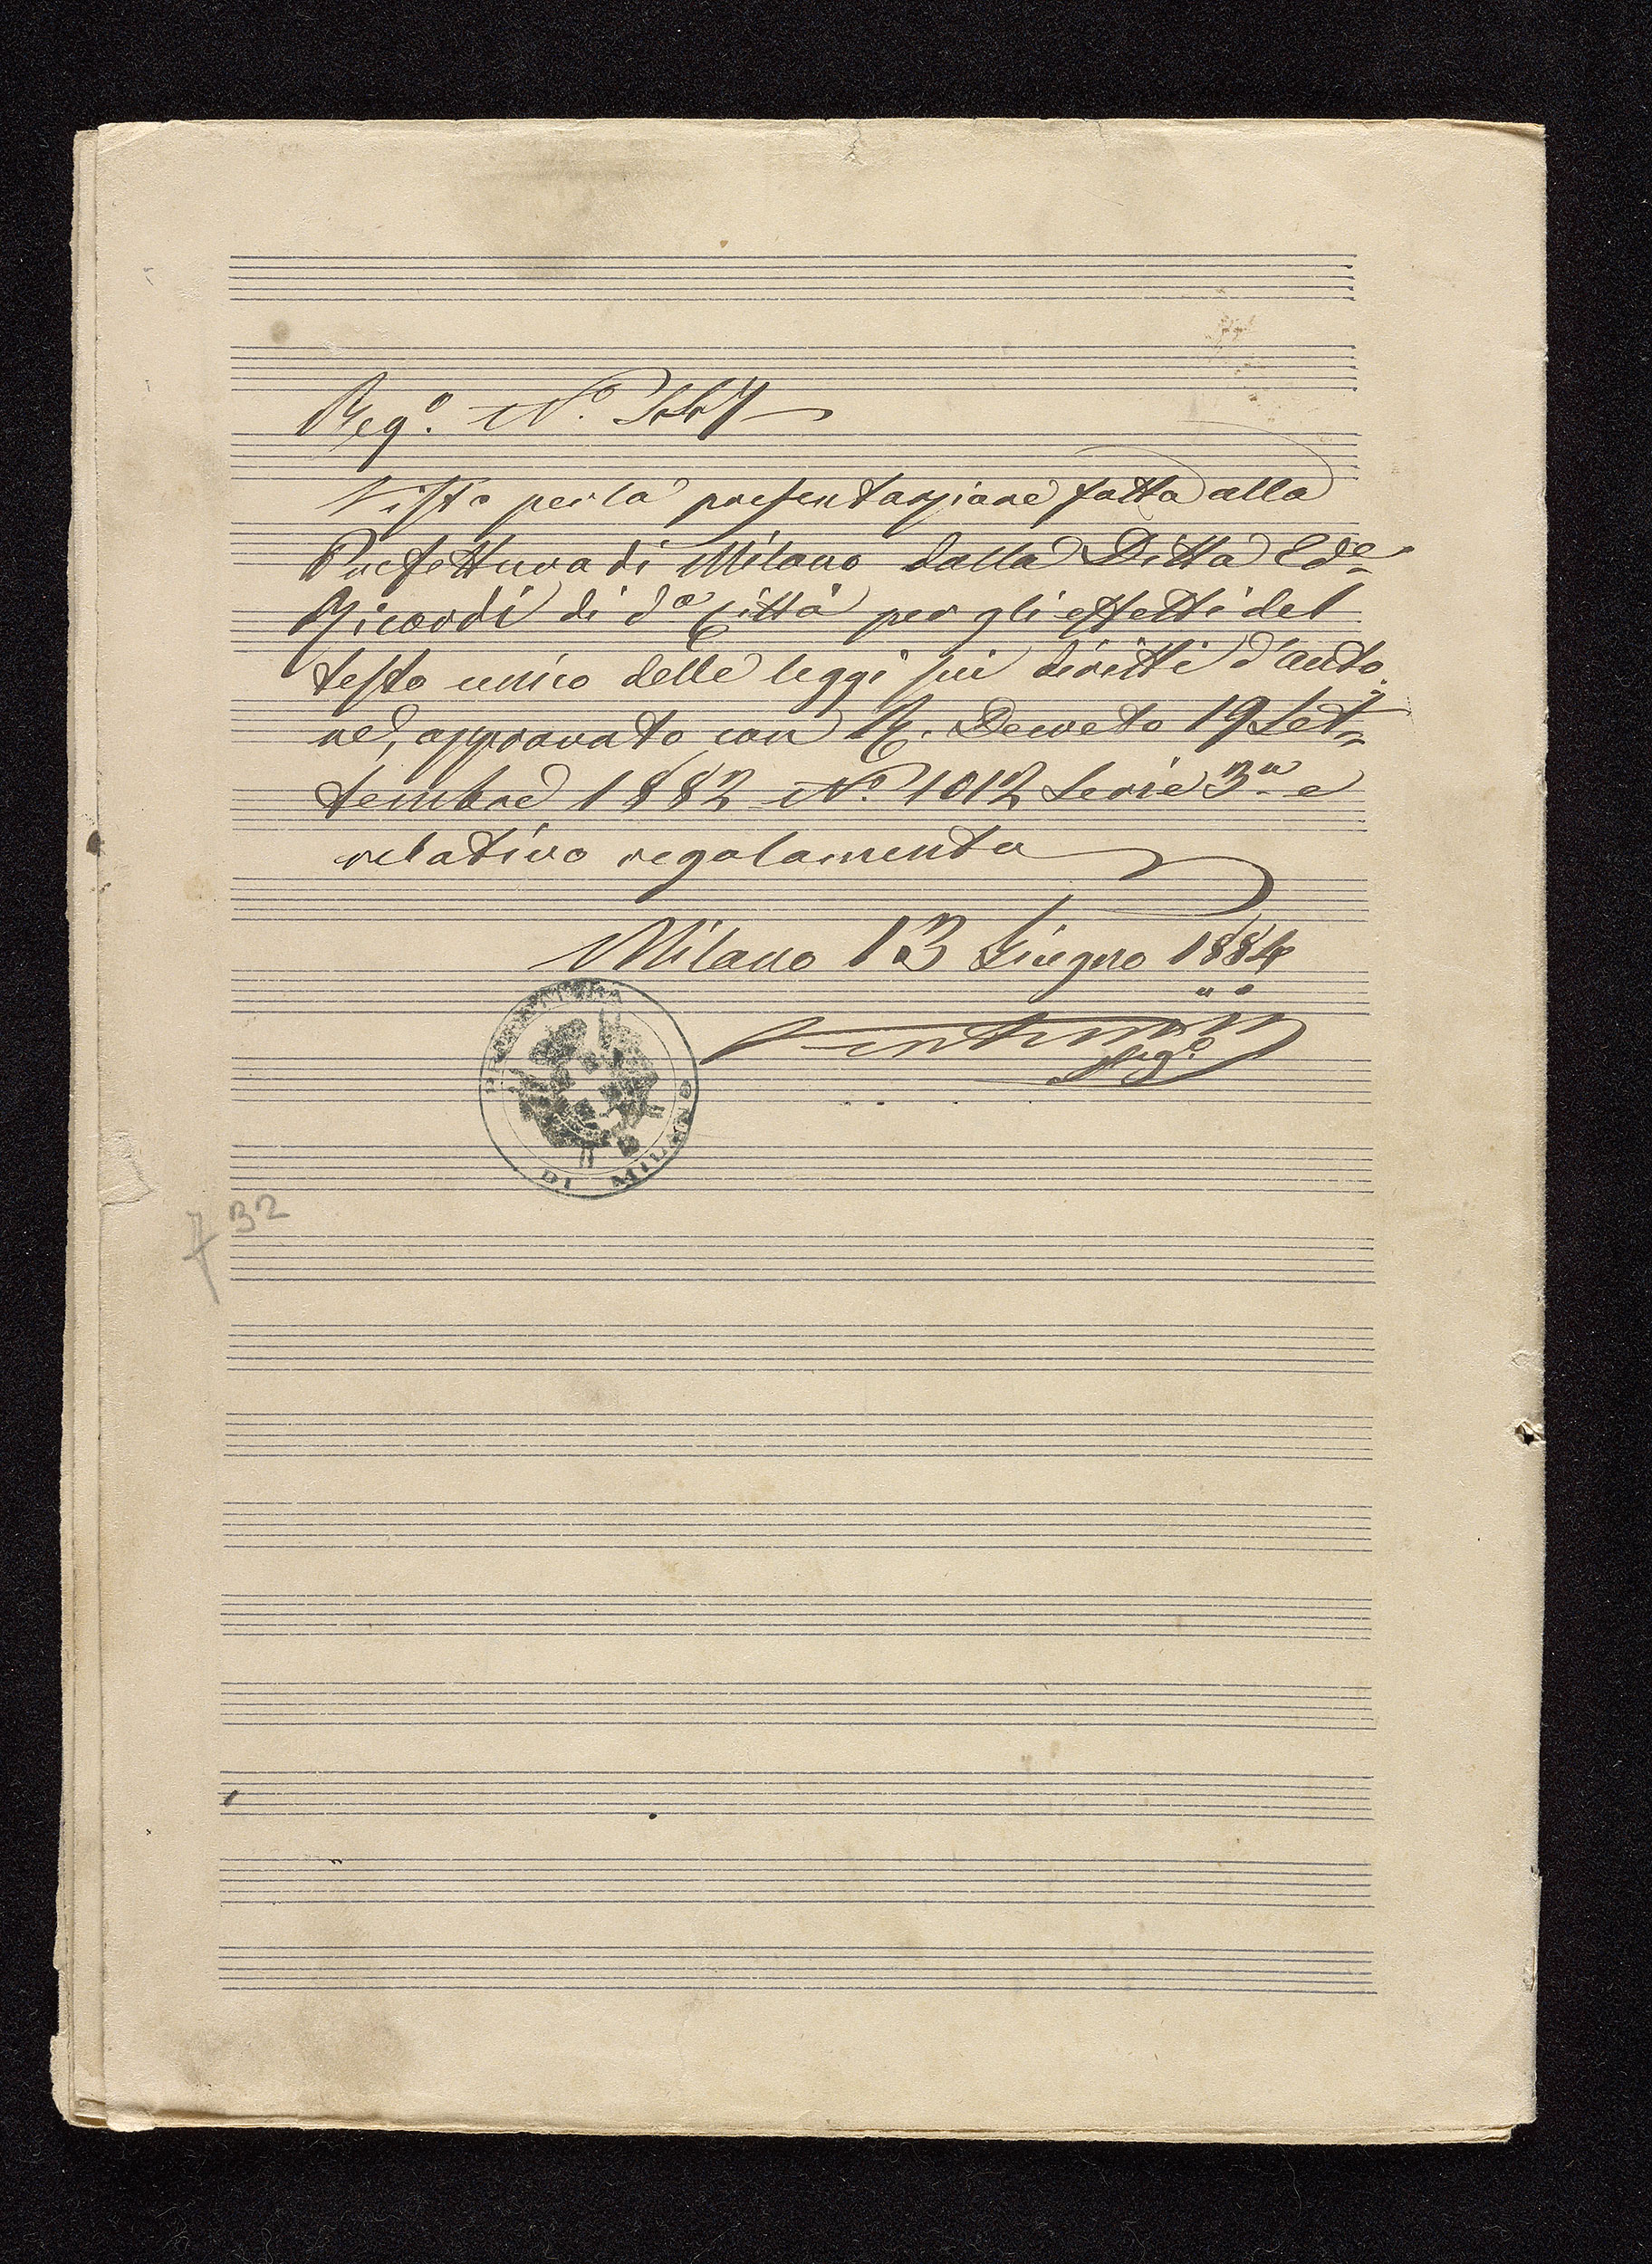 Reg.º Nº
Visto per la presentazione fatta alla
Prefettura di Milano dalla Ditta Ede
Ricordi di dª Città per gli effetti del
testo unico delle leggi sui diritti d'auto-
re, approvato con R. Decreto 19 Set-
tembre 1882 Nº 1012 Serie 3ª e
relativo regolamento
Milano 13 Giugno 1884
Segº
PREFETTURA
DI MILANO
732